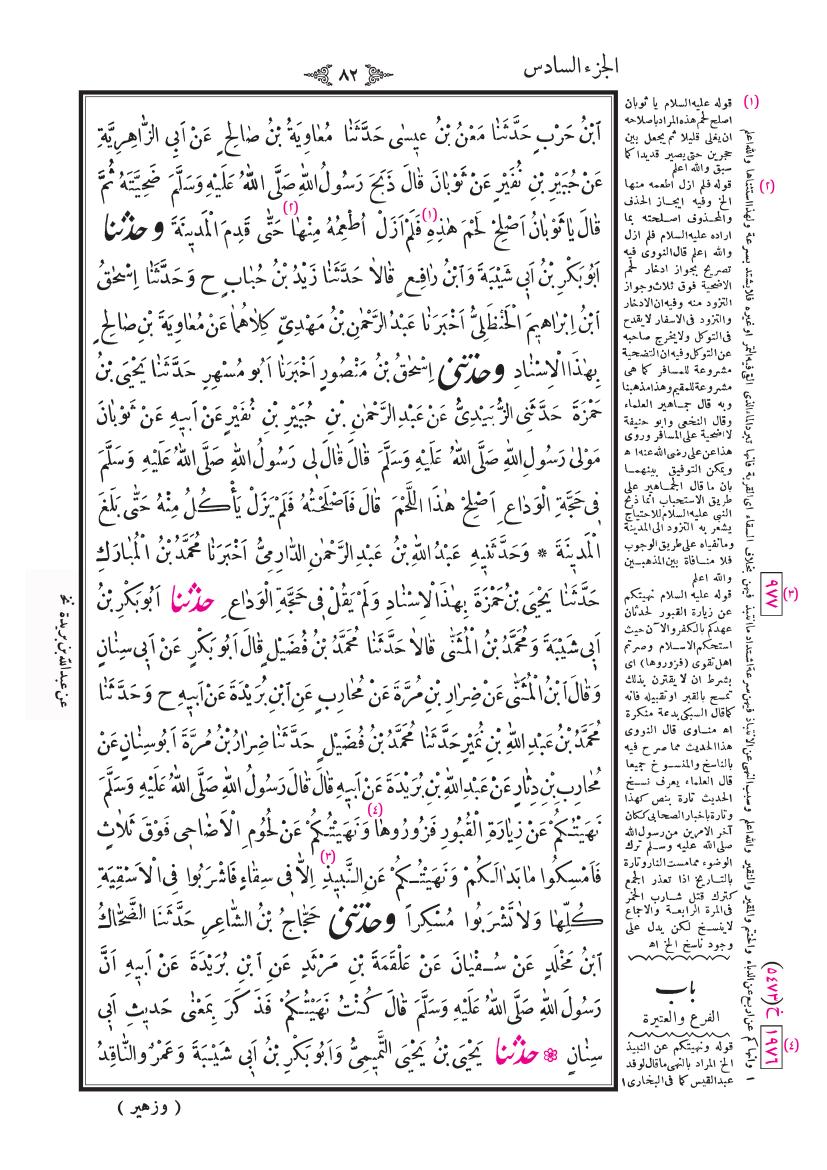 الجزء السادس
٨٢
اَبْنُ حَرْبٍ حَدَّثَنَا مَعْنُ بْنُ عِيسٰى حَدَّثَنَا مُعَاوِيَةُ بْنُ صَالِحٍ عَنْ اَبِي الزَّاهِرِيَّةِ
عَنْ جُبَيْرِ بْنِ نُفَيْرٍ عَنْ ثَوْبَانَ قَالَ ذَبَحَ رَسُولُ اللهِ صَلَّى اللهُ عَلَيْهِ وَسَلَّمَ ضَحِيَّتَهُ ثُمَّ
قَالَ يَا ثَوْبَانُ اَصْلِحْ لَحْمَ هٰذِهِ (١) فَلَمْ اَزَلْ اُطْعِمُهُ مِنْهَا (٢) حَتَّى قَدِمَ الْمَدِينَةَ وحدثنا
اَبُوبَكْرِ بْنُ اَبِي شَيْبَةَ وَابْنُ رَافِعٍ قَالَا حَدَّثَنَا زَيْدُ بْنُ حُبَابٍ ح وَحَدَّثَنَا اِسْحٰقُ
ابْنُ اِبْرَاهِيمَ الْحَنْظَلِيُّ اَخْبَرَنَا عَبْدُ الرَّحْمٰنِ بْنُ مَهْدِيٍّ كِلَاهُمَا عَنْ مُعَاوِيَةَ بْنِ صَالِحٍ
بِهٰذَا الْاِسْنَادِ وحدثنى اِسْحٰقُ بْنُ مَنْصُورٍ اَخْبَرَنَا اَبُو مُسْهِرٍ حَدَّثَنَا يَحْيَى بْنُ
حَمْزَةَ حَدَّثَنِي الزُّبَيْدِيُّ عَنْ عَبْدِ الرَّحْمٰنِ بْنِ جُبَيْرِ بْنِ نُفَيْرٍ عَنْ اَبِيهِ عَنْ ثَوْبَانَ
مَوْلٰى رَسُولِ اللهِ صَلَّى اللهُ عَلَيْهِ وَسَلَّمَ قَالَ قَالَ لِي رَسُولُ اللهِ صَلَّى اللهُ عَلَيْهِ وَسَلَّمَ
فِي حَجَّةِ الْوَدَاعِ اَصْلِحْ هٰذَا اللَّحْمَ قَالَ فَاَصْلَحْتُهُ فَلَمْ يَزَلْ يَأْكُلُ مِنْهُ حَتَّى بَلَغَ
الْمَدِينَةَ * وَحَدَّثَنِيهِ عَبْدُ اللهِ بْنُ عَبْدِ الرَّحْمٰنِ الدَّارِمِيُّ اَخْبَرَنَا مُحَمَّدُ بْنُ الْمُبَارَكِ
حَدَّثَنَا يَحْيَى بْنُ حَمْزَةَ بِهٰذَا الْاِسْنَادِ وَلَمْ يَقُلْ فِي حَجَّةِ الْوَدَاعِ حدثنا اَبُوبَكْرِ بْنُ
اَبِي شَيْبَةَ وَمُحَمَّدُ بْنُ الْمُثَنَّى قَالَا حَدَّثَنَا مُحَمَّدُ بْنُ فُضَيْلٍ قَالَ اَبُوبَكْرٍ عَنْ اَبِي سِنَانٍ
وَقَالَ ابْنُ الْمُثَنَّى عَنْ ضِرَارِ بْنِ مُرَّةَ عَنْ مُحَارِبٍ عَنِ ابْنِ بُرَيْدَةَ عَنْ اَبِيهِ ح وَحَدَّثَنَا
مُحَمَّدُ بْنُ عَبْدِ اللهِ بْنِ نُمَيْرٍ حَدَّثَنَا مُحَمَّدُ بْنُ فُضَيْلٍ حَدَّثَنَا ضِرَارُ بْنُ مُرَّةَ اَبُو سِنَانٍ عَنْ
مُحَارِبِ بْنِ دِثَارٍ عَنْ عَبْدِ اللهِ بْنِ بُرَيْدَةَ عَنْ اَبِيهِ قَالَ قَالَ رَسُولُ اللهِ صَلَّى اللهُ عَلَيْهِ وَسَلَّمَ
نَهَيْتُكُمْ عَنْ زِيَارَةِ الْقُبُورِ فَزُورُوهَا (٤) وَنَهَيْتُكُمْ عَنْ لُحُومِ الْاَضَاحِي فَوْقَ ثَلَاثٍ
فَاَمْسِكُوا مَا بَدَا لَكُمْ وَنَهَيْتُكُمْ عَنِ النَّبِيذِ (٣) اِلَّا فِي سِقَاءٍ فَاشْرَبُوا فِي الْاَسْقِيَةِ
كُلِّهَا وَلَا تَشْرَبُوا مُسْكِراً وحدثنى حَجَّاجُ بْنُ الشَّاعِرِ حَدَّثَنَا الضَّحَّاكُ
ابْنُ مَخْلَدٍ عَنْ سُفْيَانَ عَنْ عَلْقَمَةَ بْنِ مَرْثَدٍ عَنِ ابْنِ بُرَيْدَةَ عَنْ اَبِيهِ اَنَّ
رَسُولَ اللهِ صَلَّى اللهُ عَلَيْهِ وَسَلَّمَ قَالَ كُنْتُ نَهَيْتُكُمْ فَذَكَرَ بِمَعْنٰى حَدِيثِ اَبِي
سِنَانٍ * حدثنا يَحْيَى بْنُ يَحْيَى التَّمِيمِيُّ وَاَبُوبَكْرِ بْنُ اَبِي شَيْبَةَ وَعَمْرٌو النَّاقِدُ
( وزهير )
(١) قوله عليه السلام يا ثوبان
اصلح لحم هذه المراد باصلاحه
ان يغلى قليلا ثم يجعل بين
حجرين حتى يصير قديدا كما
سبق والله اعلم
(٢) قوله فلم ازل اطعمه منها
الخ وفيه ايجاز الحذف
والمحذوف اصلحته بما
اراده عليه السلام فلم ازل
والله اعلم قال النووى فيه
تصريح بجواز ادخار لحم
الاضحية فوق ثلاث وجواز
التزود منه وفيه ان الادخار
والتزود فى الاسفار لا يقدح
فى التوكل ولا يخرج صاحبه
عن التوكل وفيه ان التضحية
مشروعة للمسافر كما هى
مشروعة للمقيم وهذا مذهبنا
وبه قال جماهير العلماء
وقال النخعى وابو حنيفة
لا اضحية على المسافر وروى
هذا عن على رضى الله عنه اه
ويمكن التوفيق بينهما
بان ما قال الجماهير على
طريق الاستحباب انما ذبح
النبى عليه السلام للاحتياج
يشعر به التزود الى المدينة
وما نفياه على طريق الوجوب
فلا منافاة بين المذهبين
والله اعلم
(٣) ٩٧٧
قوله عليه السلام نهيتكم
عن زيارة القبور لحدثان
عهدكم بالكفر والآن حيث
استحكم الاسلام وصرتم
اهل تقوى (فزوروها) اى
بشرط ان لا يقترن بذلك
تمسح بالقبر او تقبيله فانه
كما قال السبكى بدعة منكرة
اه مناوى قال النووى
هذا الحديث مما صرح فيه
بالناسخ والمنسوخ جميعا
قال العلماء يعرف نسخ
الحديث تارة بنص كهذا
وتارة باخبار الصحابى ككان
آخر الامرين من رسول الله
صلى الله عليه وسلم ترك
الوضوء مما مست النار وتارة
بالتاريخ اذا تعذر الجمع
كترك قتل شارب الخمر
فى المرة الرابعة والاجماع
لا ينسخ لكن يدل على
وجود ناسخ الخ اه
باب
الفرع والعتيرة
خ (٥٤٧٣)
١٩٧٦
(٤) قوله ونهيتكم عن النبيذ
الخ المراد بالنهى ما قال لوفد
عبد القيس كما فى البخارى ١
عن عبد الله بن بريدة نخ